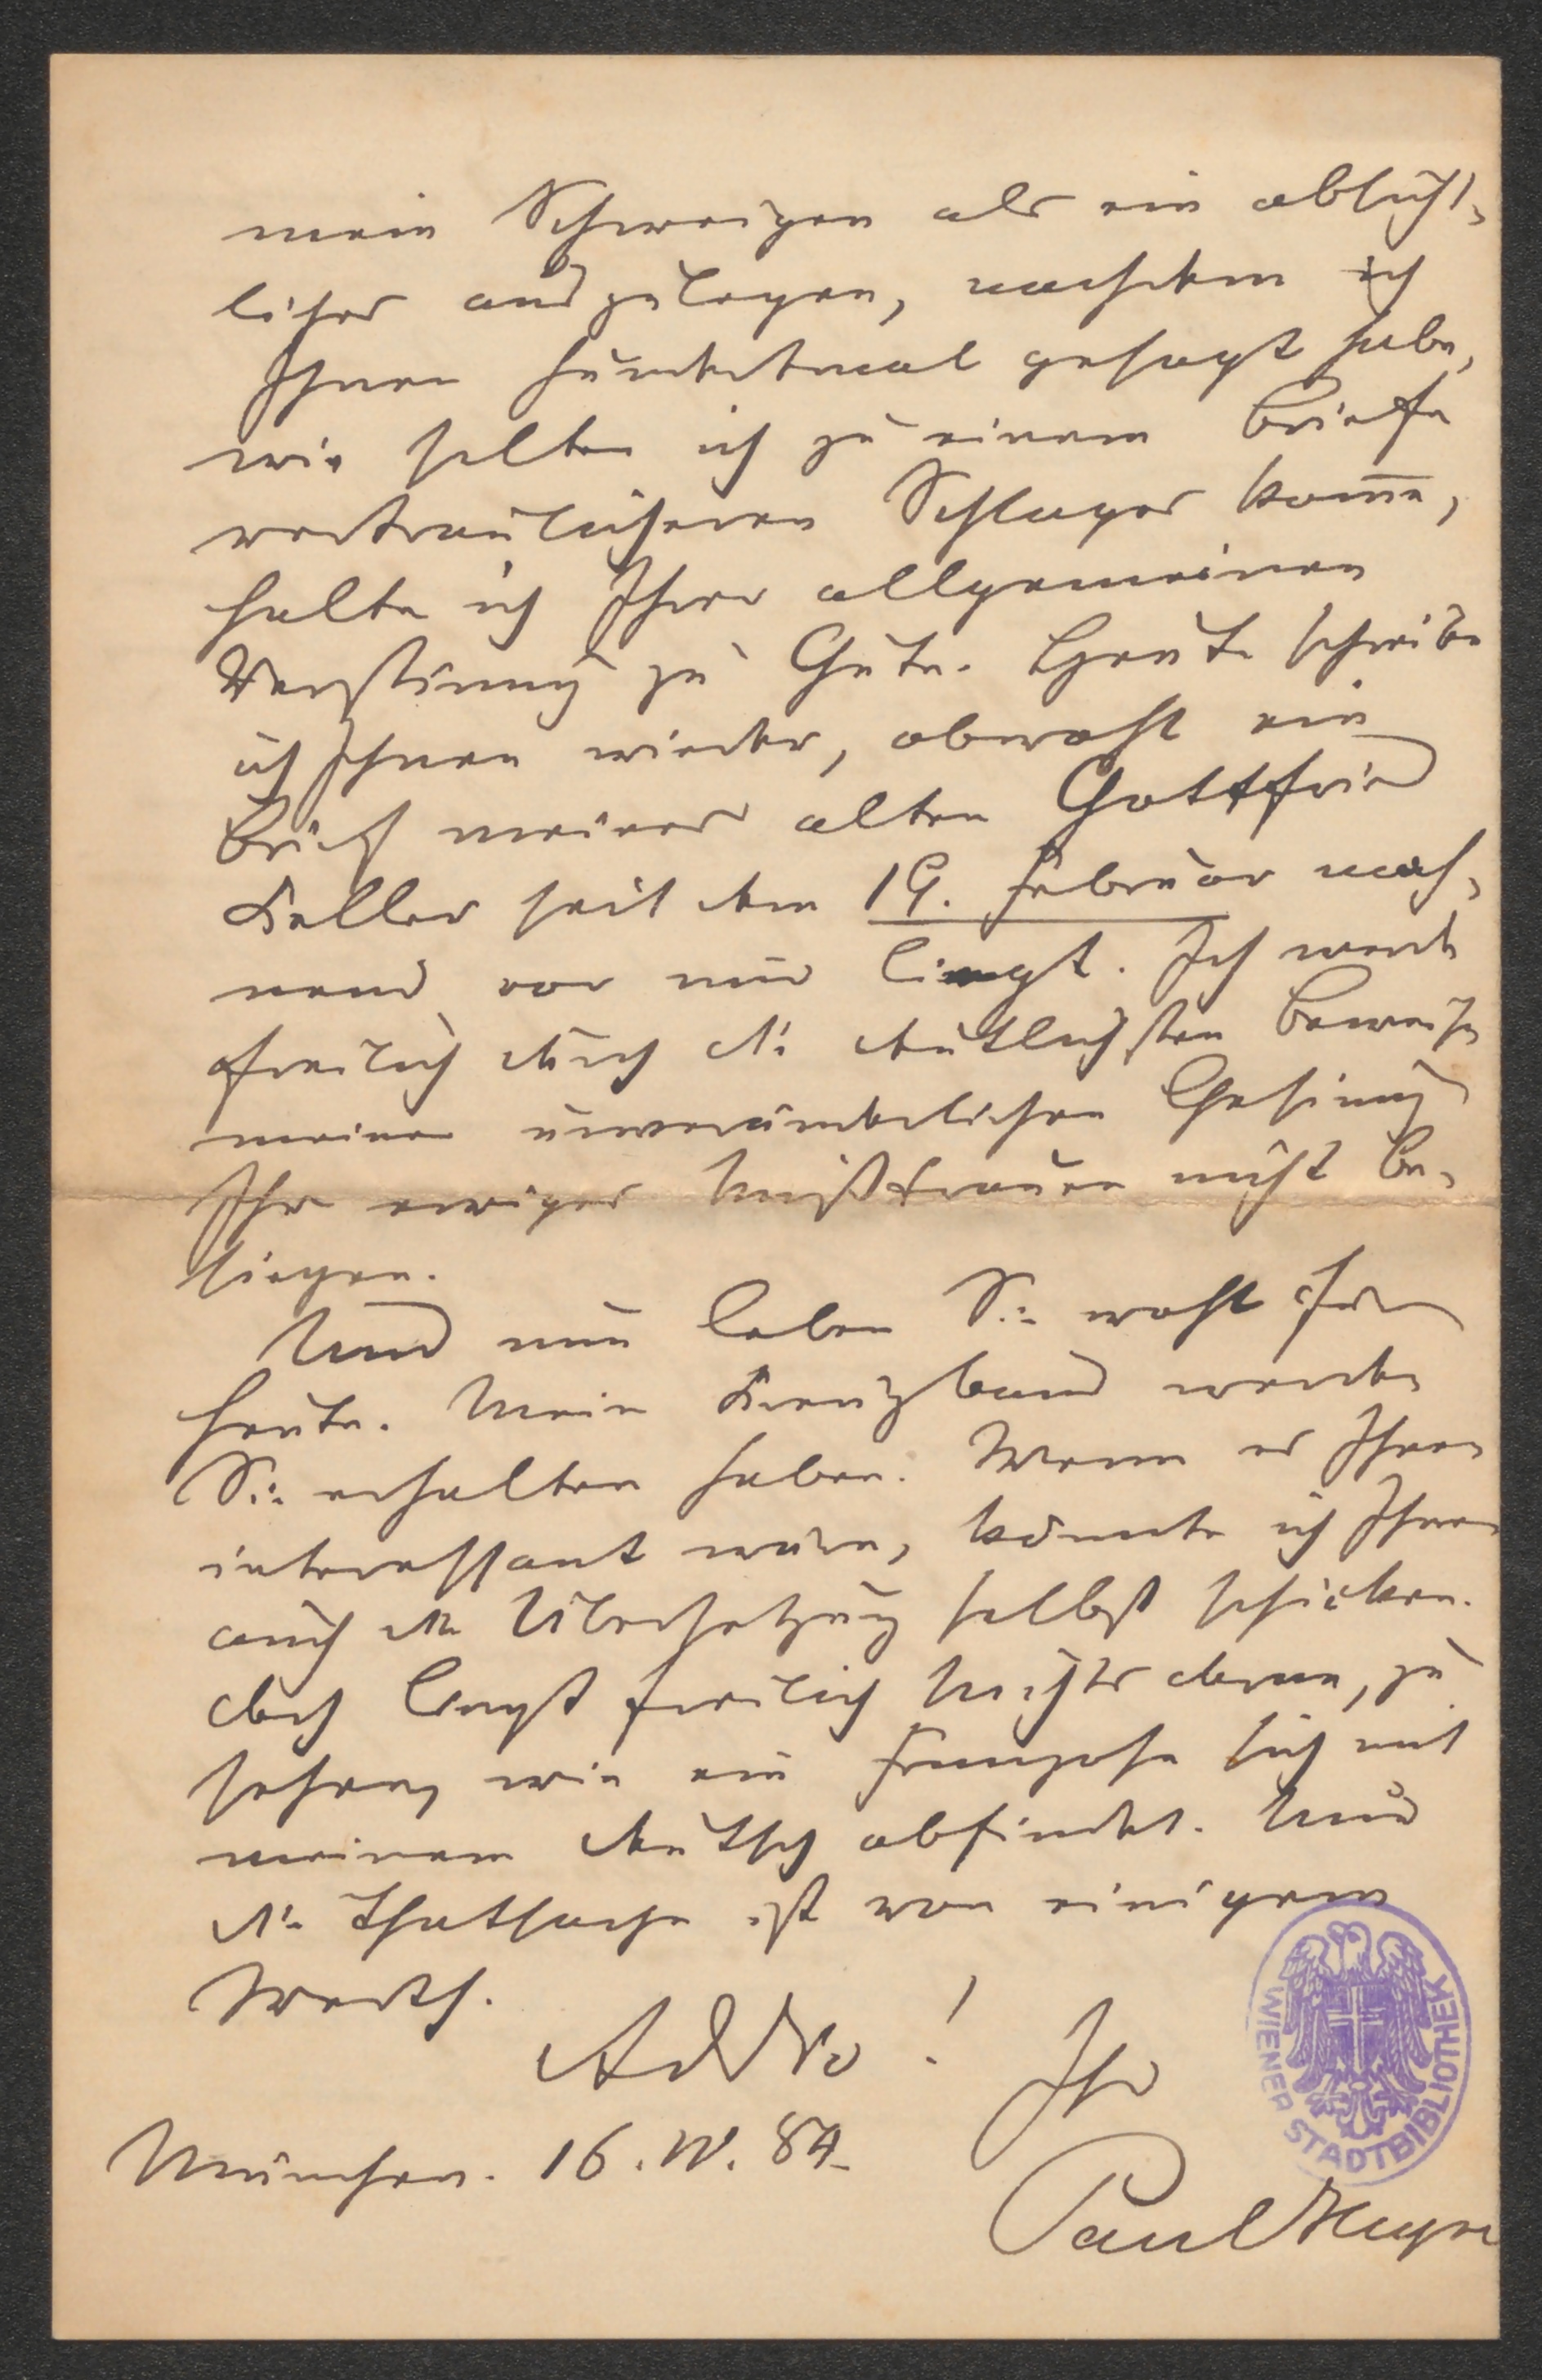 mein Schweigen als ein absicht-
liches auszulegen, nachdem ich
Ihnen hundertmal gesagt habe,
wie selten ich zu einem Briefe
vertraulicheren Schlages kom̄e,
halte ich Ihrer allgemeinen
Verstim̄ung zu Gute. Heute schreibe
ich Ihnen wieder, obwohl ein
Brief meines alten Gottfried
Keller seit dem 19. Februar mah-
nend vor mir liegt. Ich werde
freilich durch die deutlichsten Beweise
meiner unveränderlichen Gesinnung
Ihr ewiges Mißtrauen nicht be-
siegen.
Und nun leben Sie wohl für
heute. Mein Kreuzband werden
Sie erhalten haben. Wenn es Ihnen
interessant wäre, könnte ich Ihnen
auch die Übersetzung selbst schicken.
doch liegt freilich Nichts daran, zu
sehen, wie ein Franzose sich mit
meinem Deutsch abfindet. Nur
die Thatsache ist von einigem
Werth.
Addio! Ihr
München. 16. IV. 84.
Paul Heyse
WIENER STADTBIBLIOTHEK